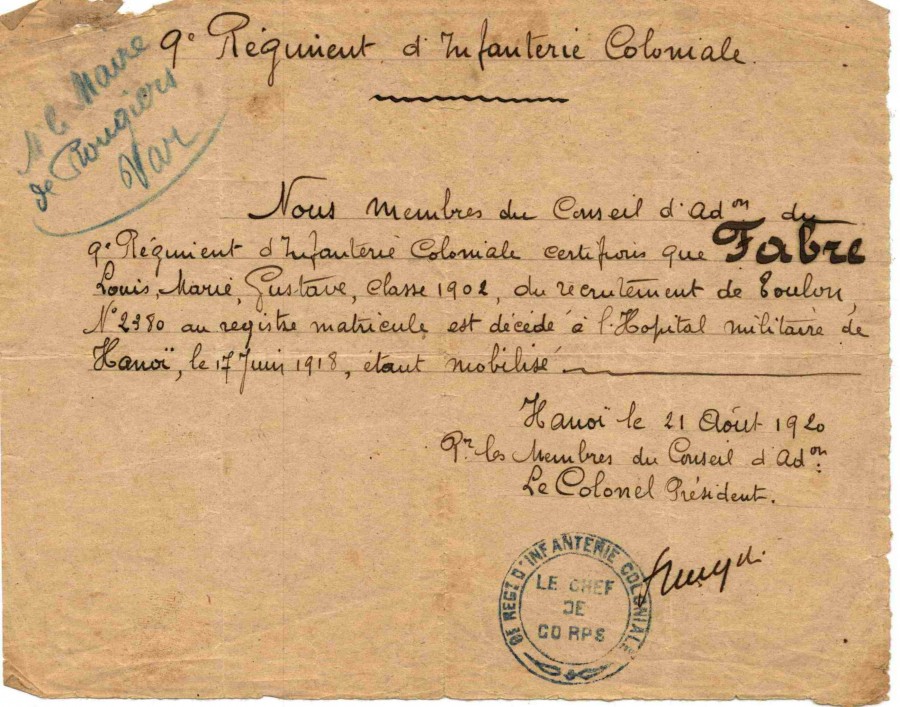 9e Régiment d'Infanterie Coloniale.
Mr le Maire
de Rougiers
Var
Nous membres du Conseil d'Adon du
9e Régiment d'Infanterie Coloniale certifions que Fabre
Louis, Marie, Gustave, classe 1902, du recrutement de Toulon,
N° 2380 au registre matricule est décédé à l'Hopital militaire de
Hanoï, le 17 Juin 1918, étant mobilisé
Hanoï le 21 Août 1920
Pr les Membres du Conseil d'Adon:
Le Colonel Président.
9E REGT D'INFANTERIE COLONIALE
LE CHEF
DE
CORPS